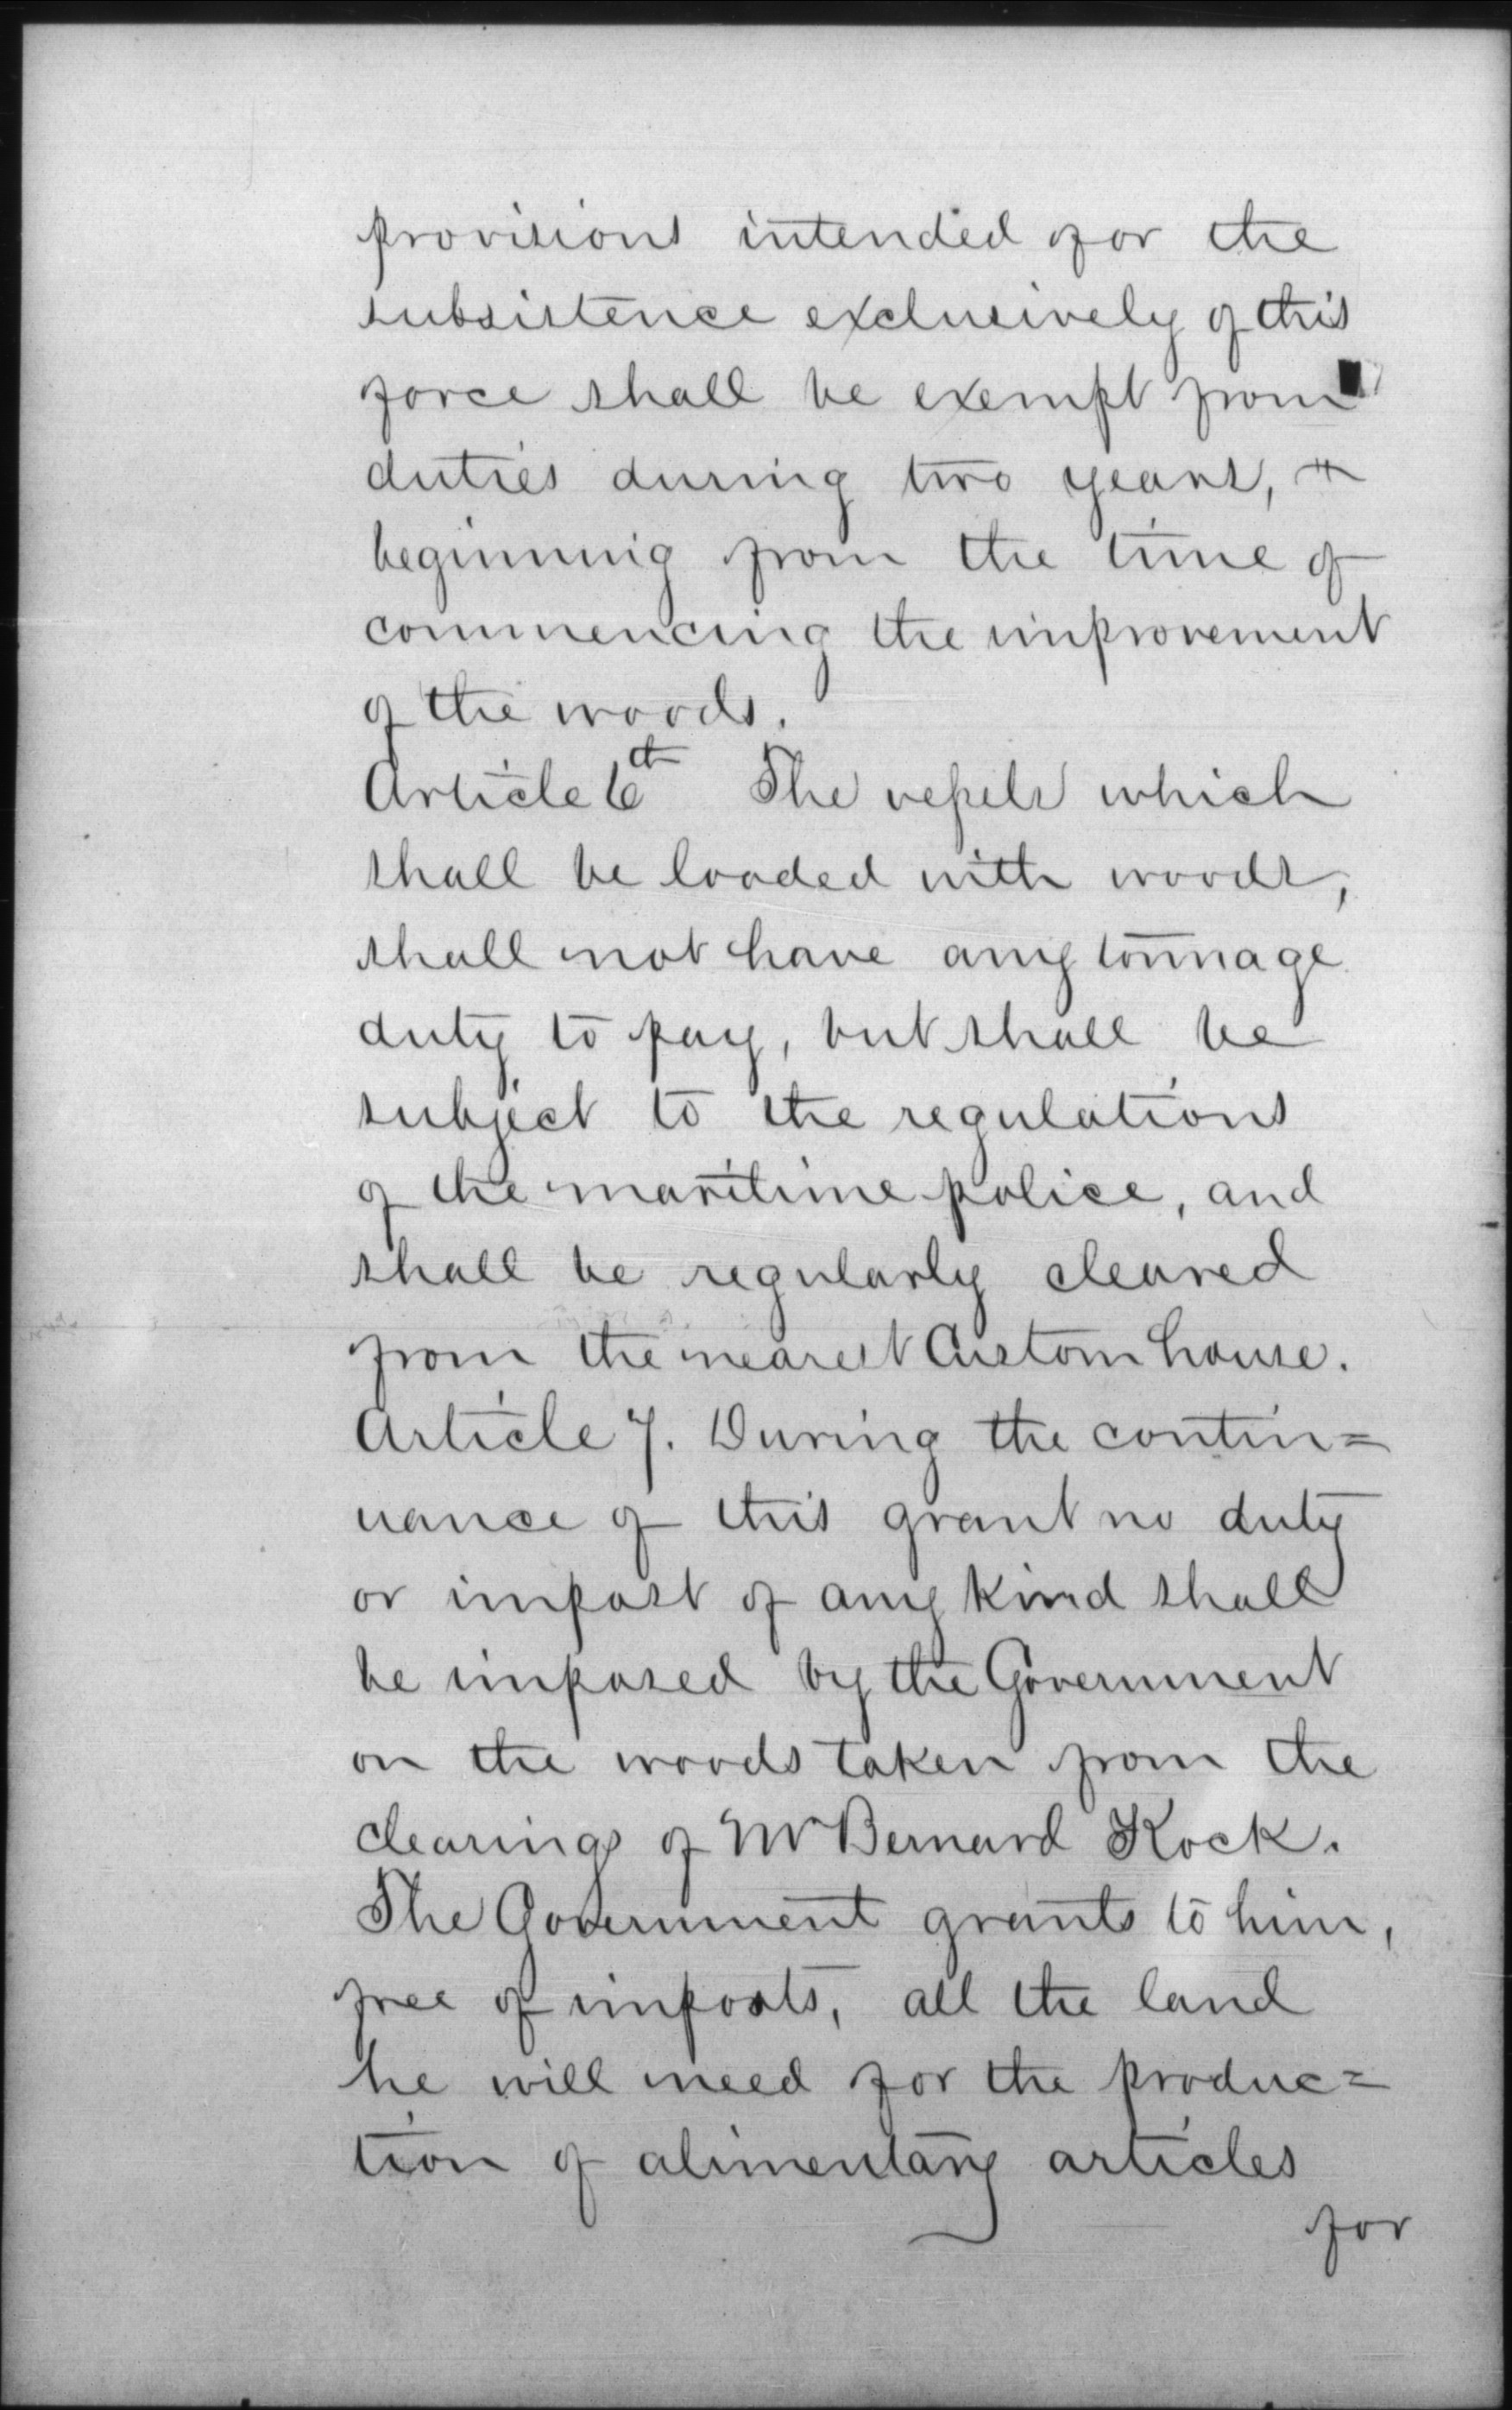 provisions intended for the
subsistence exclusively of this
force shall be exempt from
duties during two years,
beginning from the time of
commencing the improvement
of the woods.
Article 6th The vessels which
shall be loaded with woods,
shall not have any tonnage
duty to pay, but shall be
subject to the regulations
of the maritime police, and
shall be regularly cleared
from the nearest Custom house.
Article 7. During the contin=
uance of this grant no duty
or impost of any kind shall
be imposed by the Government
on the woods taken from the
clearings of Mr Bernard Kock.
The Government grants to him,
free of imposts, all the land
he will need for the produc=
tion of alimentary articles
for